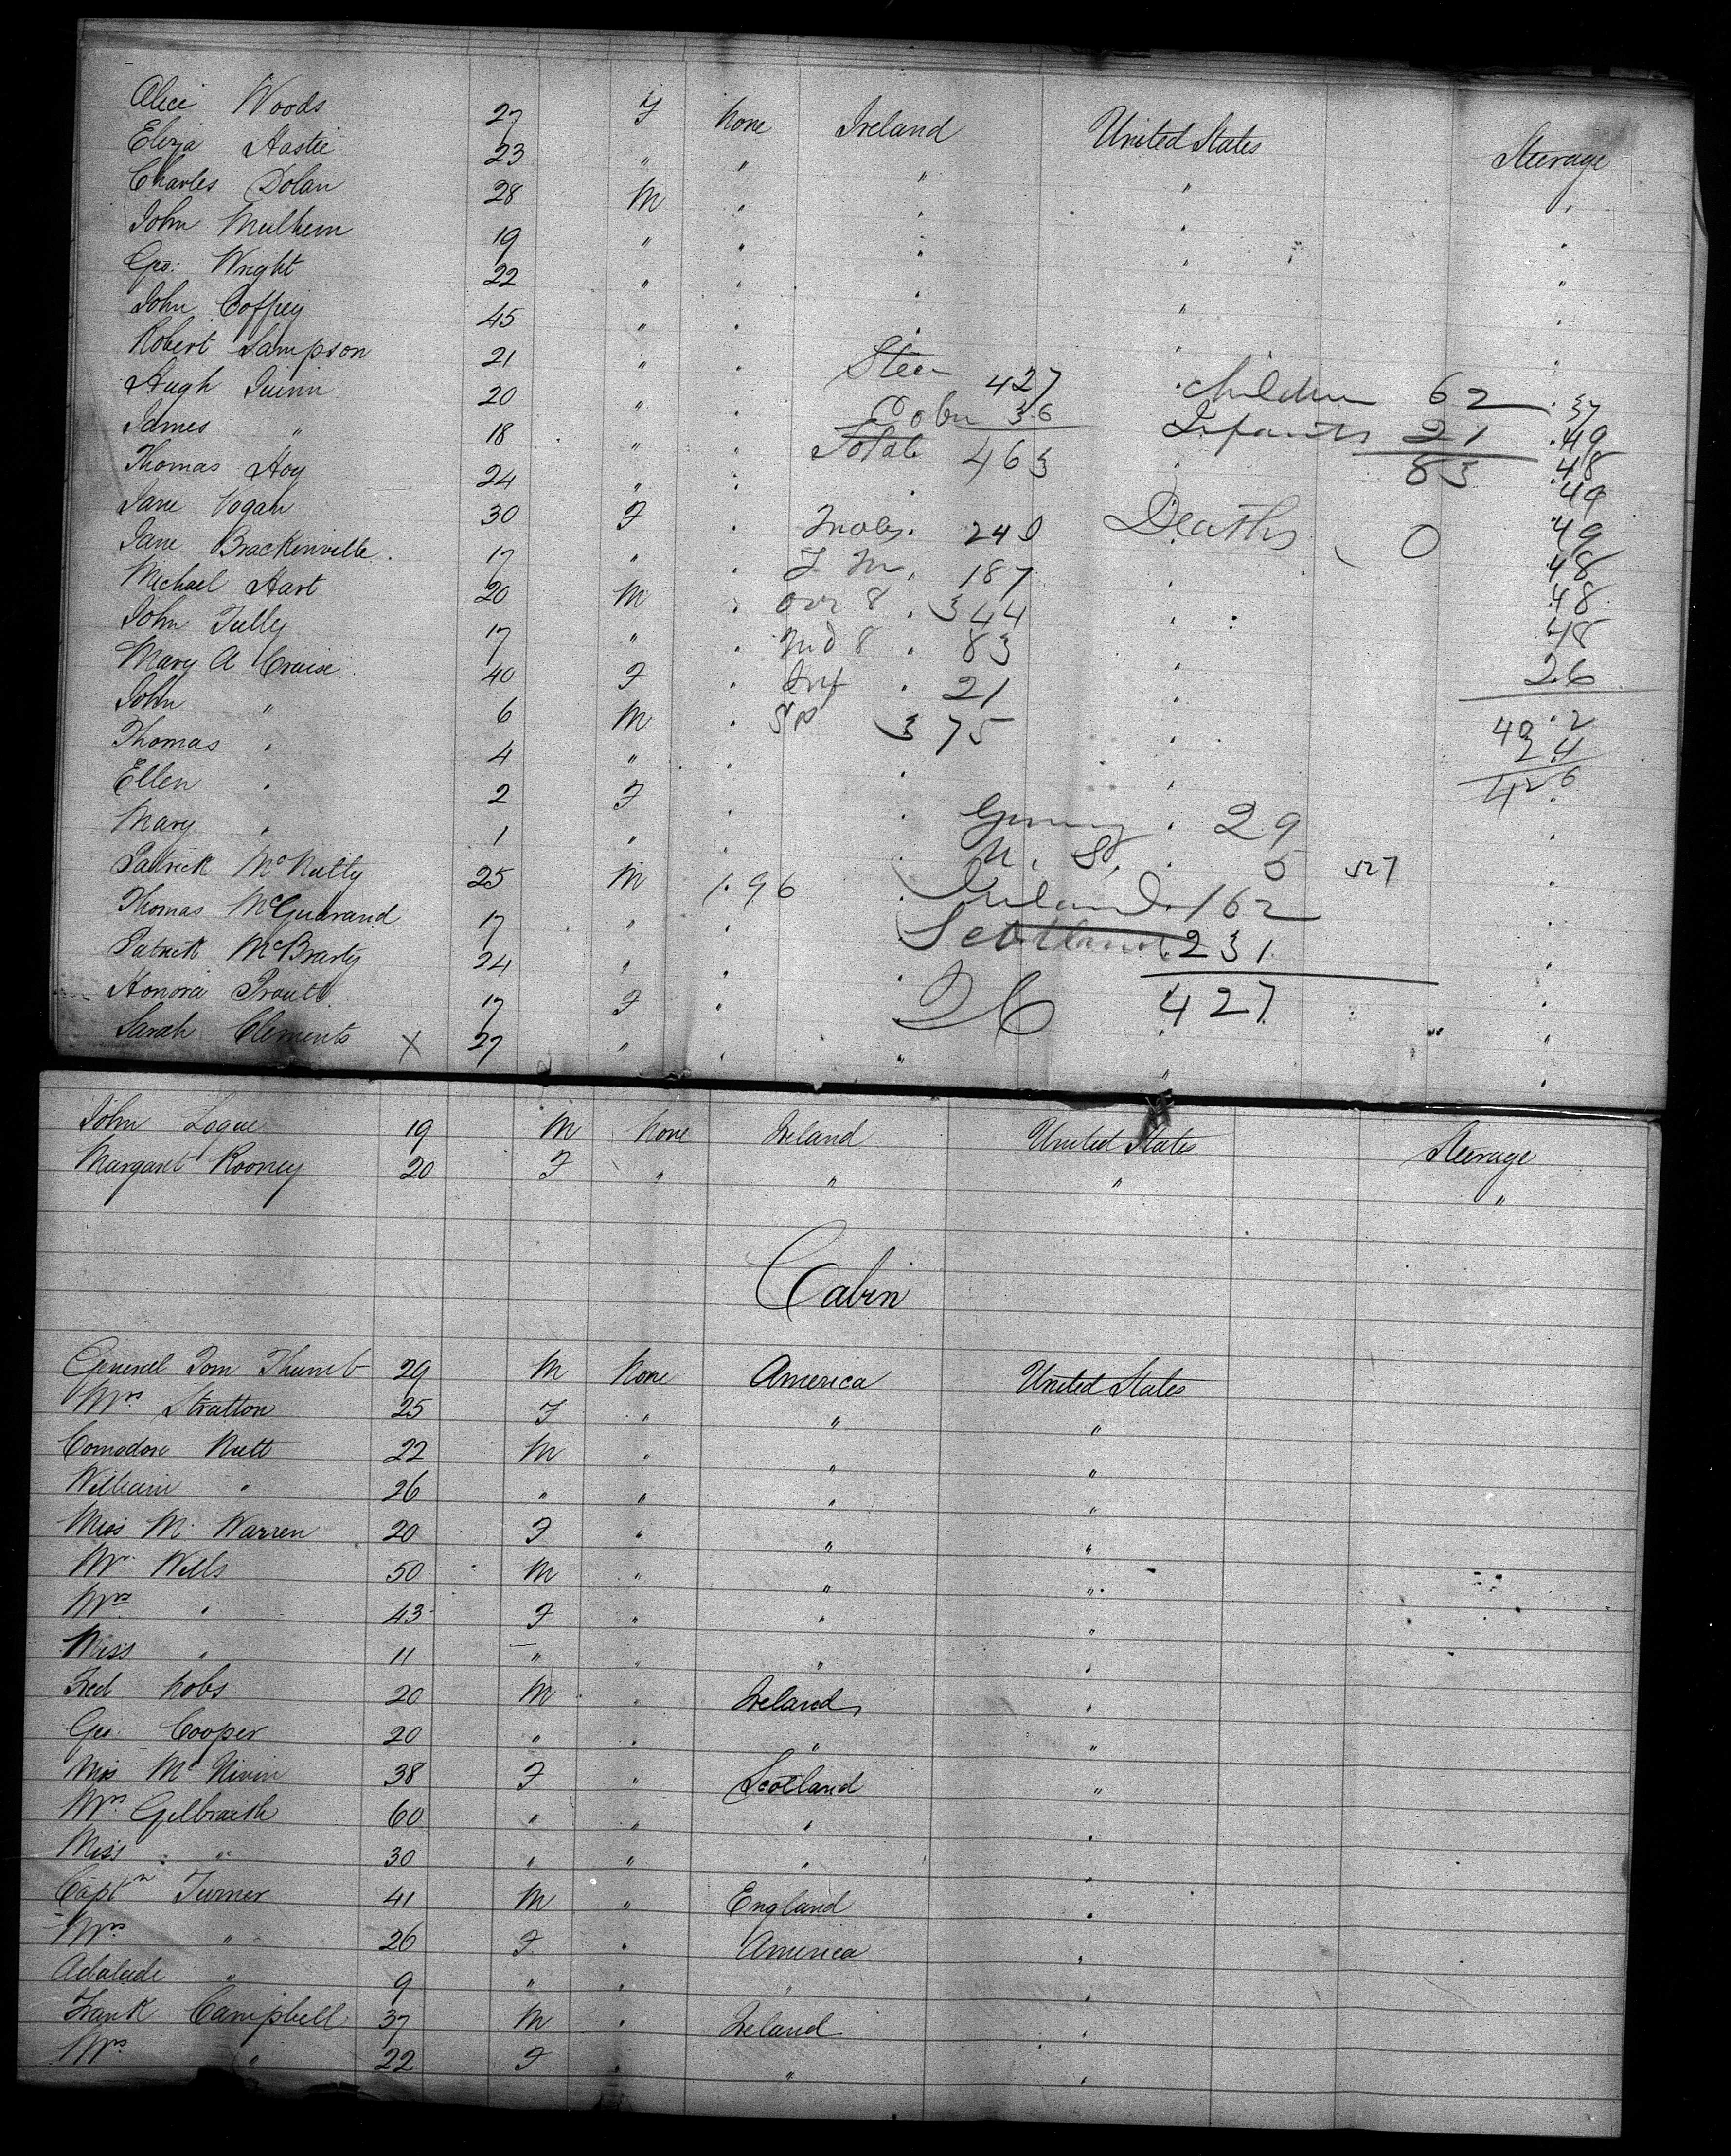 Alice Woods 27 F None Ireland United States Steerage
Eliza Hastie 23 " " " "
Charles Dolan 28 M " " " "
John Mulhern 19 " " " " "
Geo: Wright 22 " " " " "
John Coffey 45 " " " " "
Robert Sampson 21 " "
Steer 427 Children 62
Hugh Quinn 20 " " 37
Cabn 36 Infants 21
James " 18 " " 49
Total 463 83 48
Thomas Hoy 24 " " 49
Jane Vogan 30 F " 49
Males 240 Deaths 0
Jane Brackenville 17 " " 48
F M 187
Michael Hart 20 M " 48
ovr 8 344
John Tully 17 " " 48
Und 8 83
Mary A Cruise 40 F " 26
Inf 21
John " 6 M "
375 402
Thomas " 4 " " 24
Ellen " 2 F " 426
Mary " 1 " "
Germany 29
U. S. 5
Patrick McNulty 25 M 1.96
Ireland 162
Thomas McGuarand 17 " "
Scotland 231
Patrick McBrarty 24 " "
427
Honora Proutt 17 F "
Sarah Clements X 27 " " " " "
John Logue 19 M None Ireland United States Steerage
Margaret Rooney 20 F " " " "
Cabin
General Tom Thumb 29 M None America United States
Mrs Stratton 25 F " " "
Comodore Nutt 22 M " " "
William " 26 " " " "
Miss M. Warren 20 F " " "
Mr Wells 50 M " " "
Mrs " 43 F " " "
Miss " 11 " " " "
Fred Nobs 20 M " Ireland "
Geo. Cooper 20 " " " "
Miss McNivin 38 F " Scotland "
Mrs Gilbraith 60 " " " "
Miss " 30 " " " "
Captn Turner 41 M " England "
Mrs " 26 F " America "
Adalaide " 9 " " " "
Frank Campbell 37 M " Ireland "
Mrs " 22 F " " "